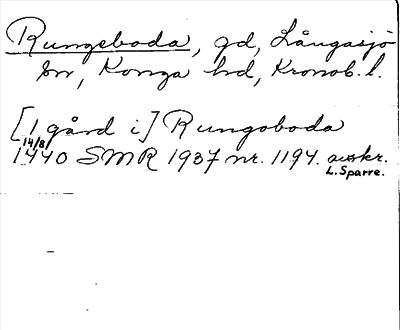 Rungeboda, gd, Långasjö
sn, Konga hd, Kronob. l.
[1 gård i] Rungoboda
14/8
1440 SMR 1937 nr. 1194. avskr.
L. Sparre.